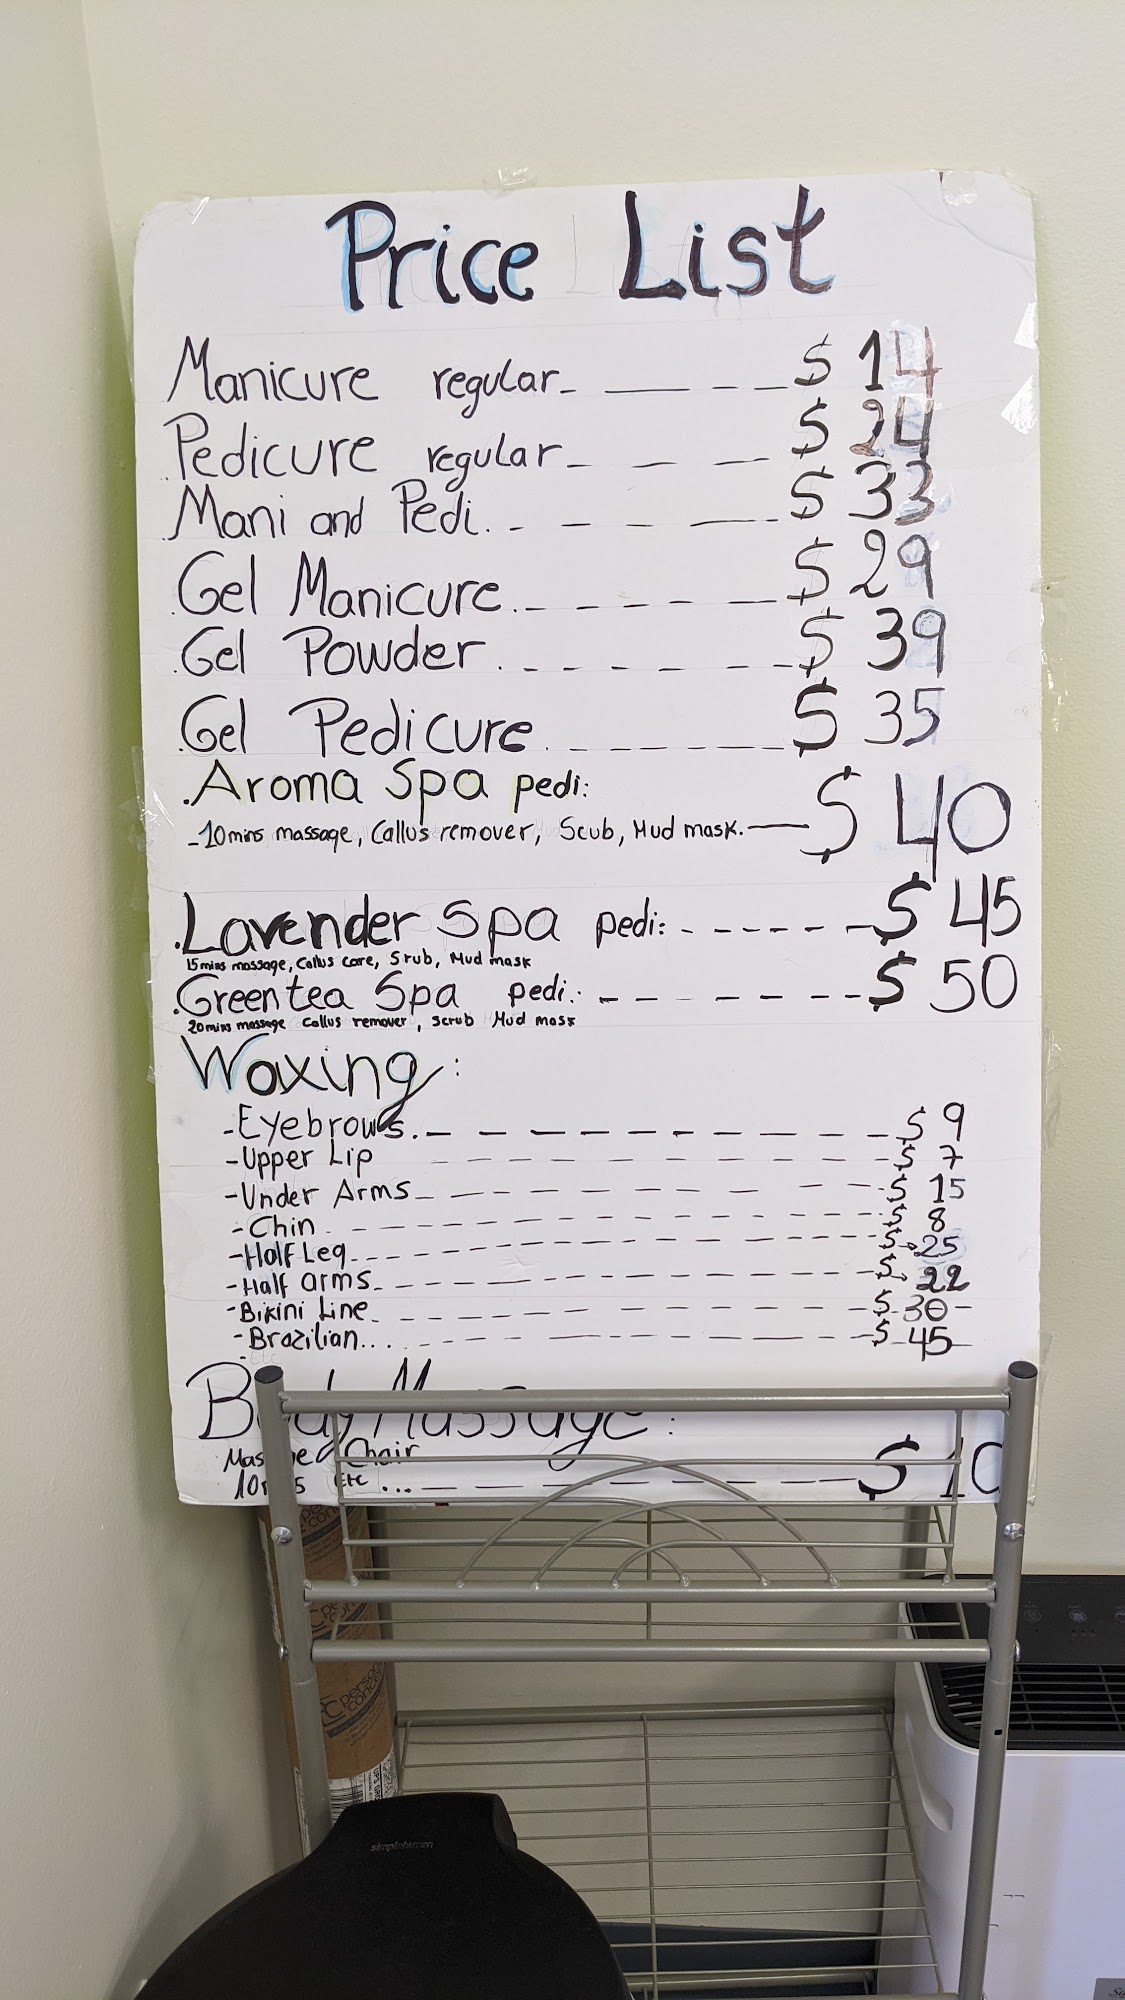 Price List
Manicure regular $ 14
.Pedicure regular $ 24
.Mani and Pedi $ 33
.Gel Manicure $ 29
.Gel Powder $ 39
.Gel Pedicure $ 35
.Aroma Spa pedi:
-10mins massage, Callus remover, Scub, Mud mask. $ 40
.Lavender Spa pedi: $ 45
15mins massage, Callus care, Srub, Mud mask
.Green tea Spa pedi: $ 50
20mins massage Callus remover, scrub Mud mask
Waxing:
-Eyebrows. $ 9
-Upper Lip $ 7
-Under Arms $ 15
-Chin $ 8
-Half Leg $ 25
-Half arms $ 22
-Bikini Line $ 30
-Brazilian... $ 45
-Etc
Body Massage:
Chair
Etc ... $ 10
simplehuman